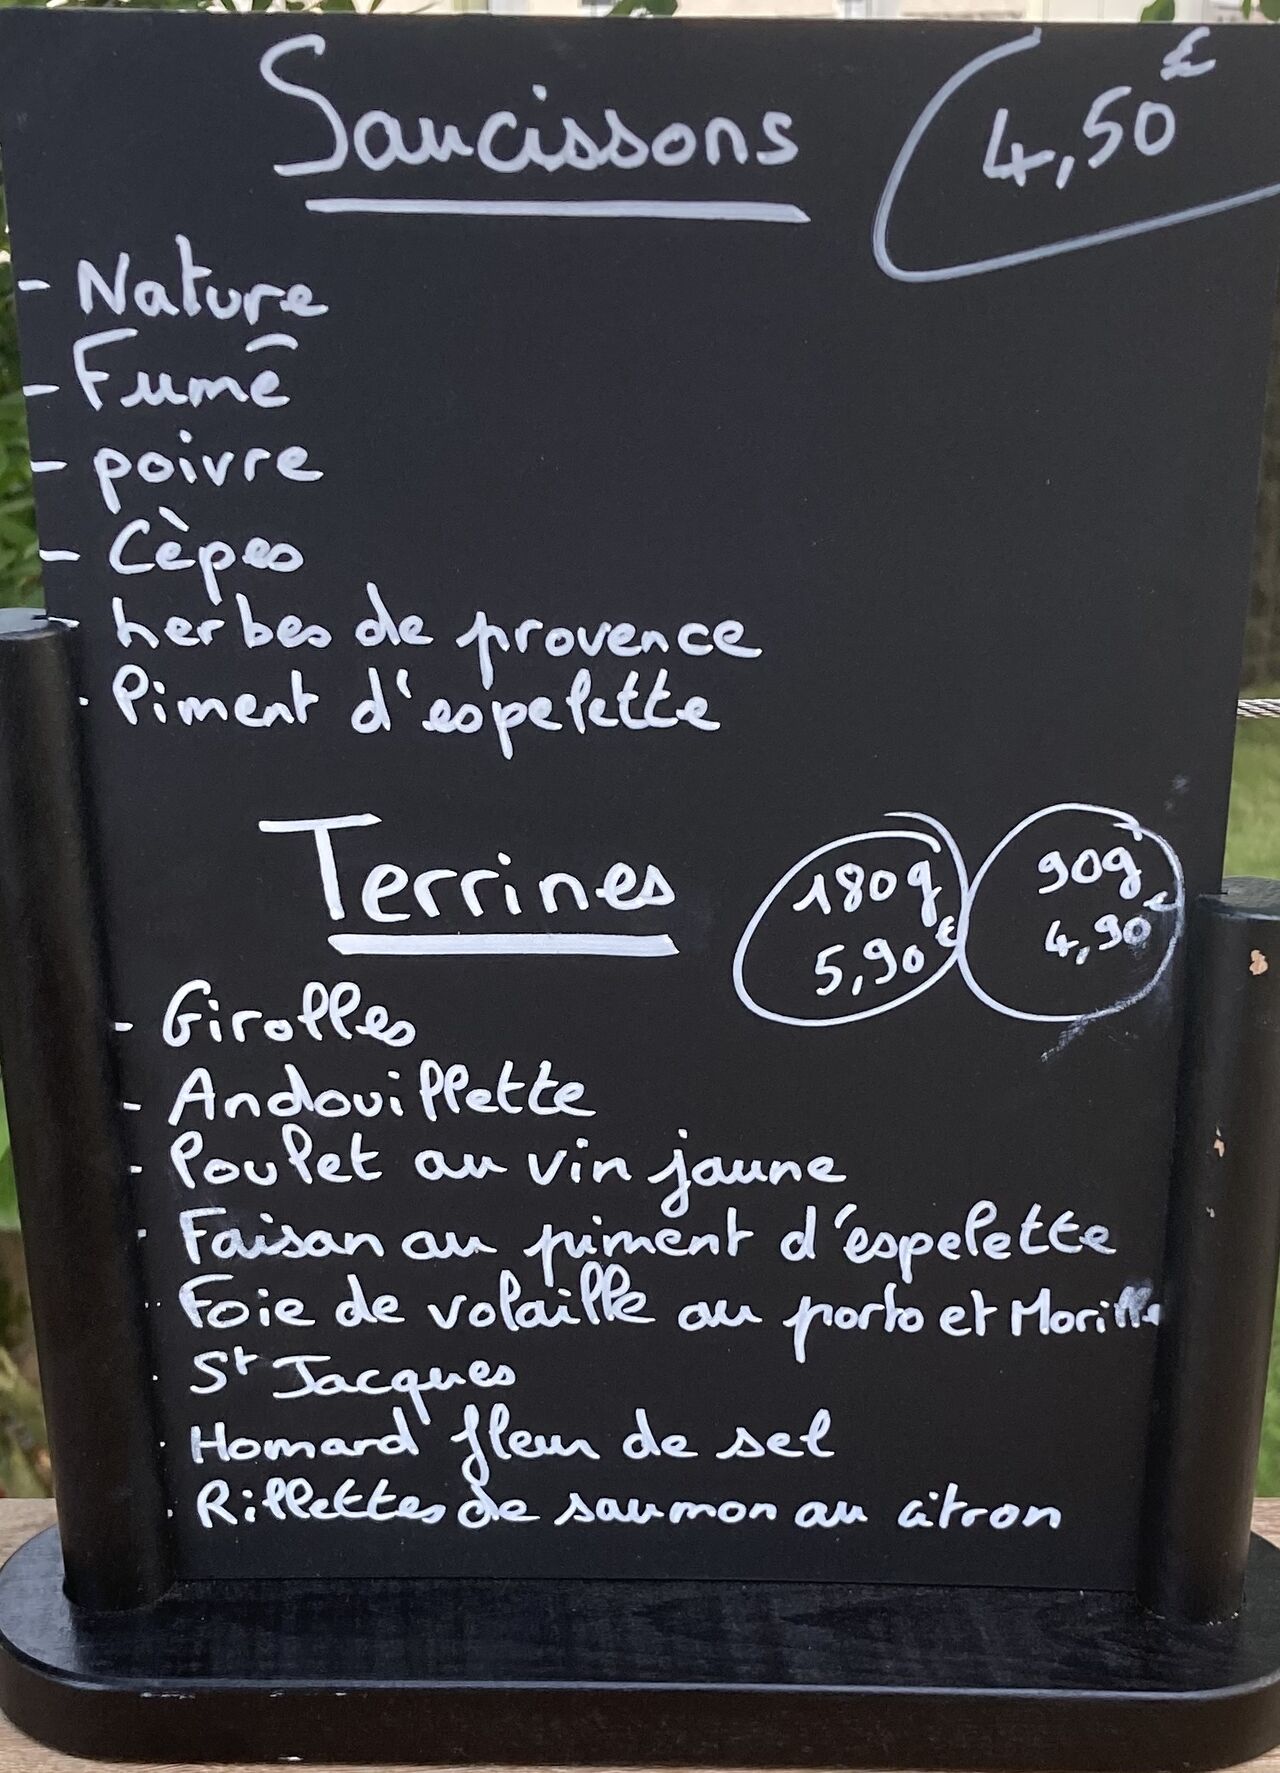 Saucissons
4,50€
- Nature
- Fumé
- poivre
- Cèpes
- herbes de provence
- Piment d'espelette
Terrines
180g
5,90€
90g
4,90€
- Girolles
- Andouillette
- Poulet au vin jaune
- Faisan au piment d'éspelette
- Foie de volaille au porto et Morille
- St Jacques
- Homard fleur de sel
- Rillettes de saumon au citron